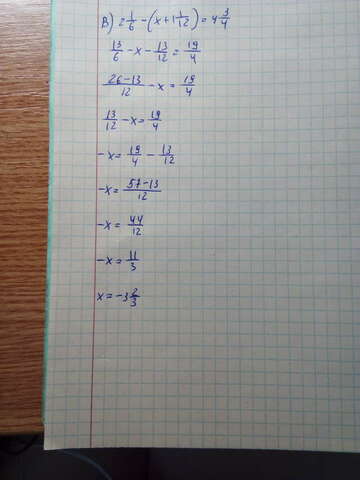 В) 2 1/6 - (x + 1 1/12) = 4 3/4
13/6 - x - 13/12 = 19/4
26-13/12 - x = 19/4
13/12 - x = 19/4
-x = 19/4 - 13/12
-x = 57-13/12
-x = 44/12
-x = 11/3
x = -3 2/3